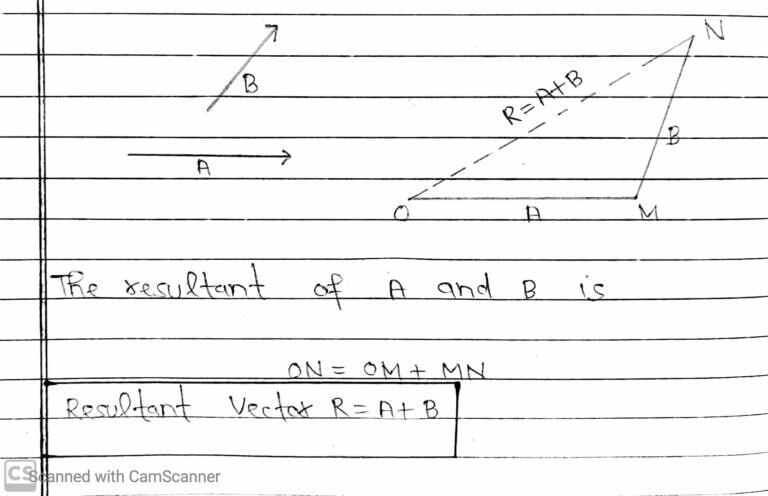 B
A
N
R=A+B
B
O A M
The resultant of A and B is
ON = OM + MN
Resultant Vector R = A + B
CS Scanned with CamScanner